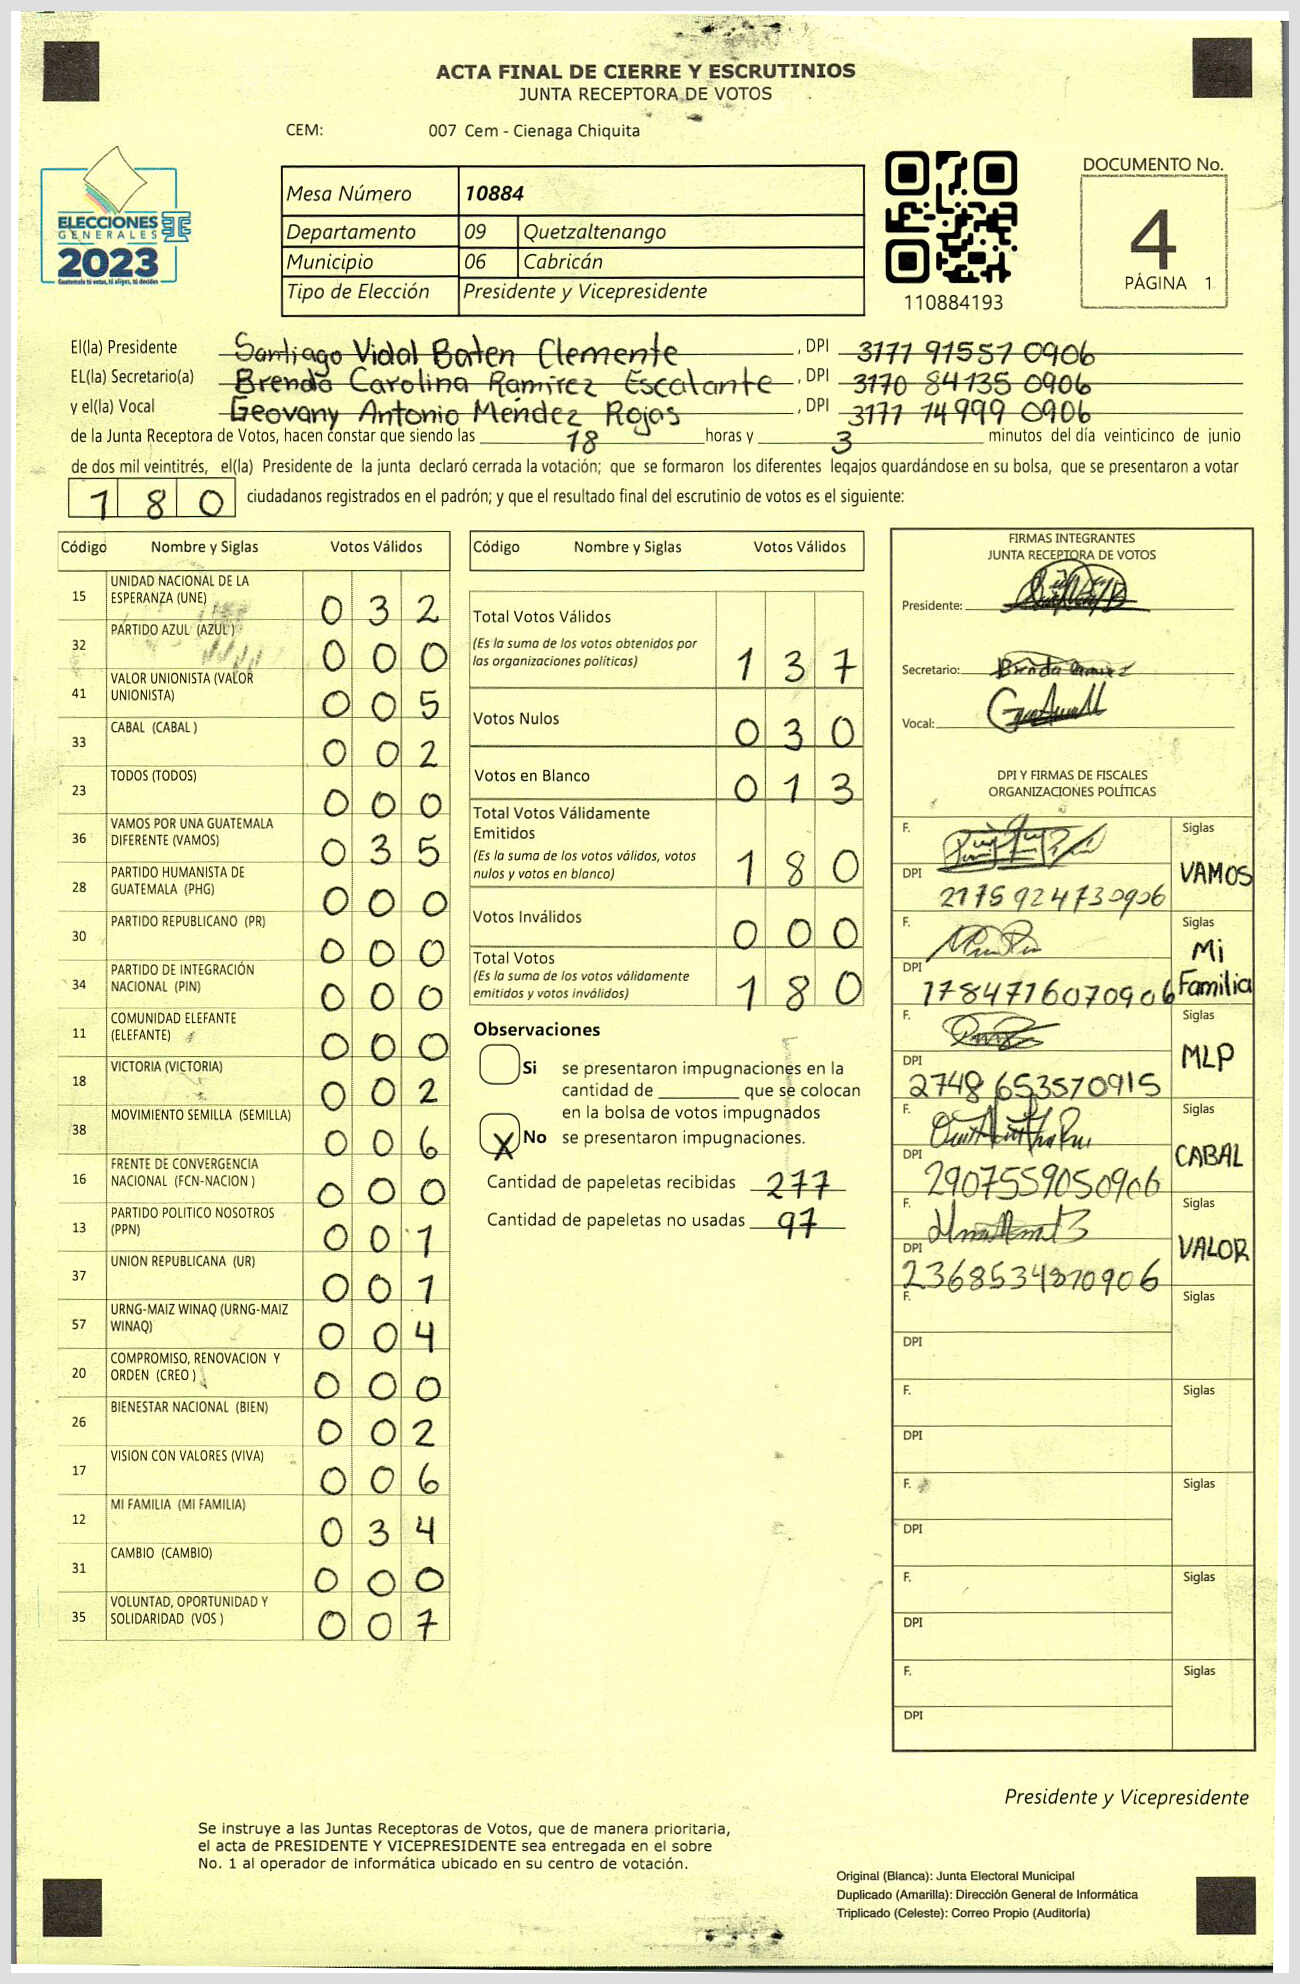 ACTA FINAL DE CIERRE Y ESCRUTINIOS
JUNTA RECEPTORA DE VOTOS
CEM: 007 Cem - Cienaga Chiquita
ELECCIONES
GENERALES
2023
Guatemala tú votas, tú eliges, tú decides
Mesa Número 10884
Departamento 09 Quetzaltenango
Municipio 06 Cabricán
Tipo de Elección Presidente y Vicepresidente
110884193
DOCUMENTO No.
4
PÁGINA 1
El(la) Presidente Santiago Vidal Baten Clemente , DPI 3177 91557 0906
EL(la) Secretario(a) Brenda Carolina Ramírez Escalante , DPI 3170 84135 0906
y el(la) Vocal Geovany Antonio Méndez Rojas , DPI 3177 74999 0906
de la Junta Receptora de Votos, hacen constar que siendo las 18 horas y 3 minutos del día veinticinco de junio
de dos mil veintitrés, el(la) Presidente de la junta declaró cerrada la votación; que se formaron los diferentes legajos guardándose en su bolsa, que se presentaron a votar
180 ciudadanos registrados en el padrón; y que el resultado final del escrutinio de votos es el siguiente:
Código Nombre y Siglas Votos Válidos
15 UNIDAD NACIONAL DE LA
ESPERANZA (UNE) 032
32 PARTIDO AZUL (AZUL) 000
41 VALOR UNIONISTA (VALOR
UNIONISTA) 005
33 CABAL (CABAL ) 002
23 TODOS (TODOS) 000
36 VAMOS POR UNA GUATEMALA
DIFERENTE (VAMOS) 035
28 PARTIDO HUMANISTA DE
GUATEMALA (PHG) 000
30 PARTIDO REPUBLICANO (PR) 000
34 PARTIDO DE INTEGRACIÓN
NACIONAL (PIN) 000
11 COMUNIDAD ELEFANTE
(ELEFANTE) 000
18 VICTORIA (VICTORIA) 002
38 MOVIMIENTO SEMILLA (SEMILLA) 006
16 FRENTE DE CONVERGENCIA
NACIONAL (FCN-NACION ) 000
13 PARTIDO POLITICO NOSOTROS
(PPN) 001
37 UNION REPUBLICANA (UR) 001
57 URNG-MAIZ WINAQ (URNG-MAIZ
WINAQ) 004
20 COMPROMISO, RENOVACION Y
ORDEN (CREO ) 000
26 BIENESTAR NACIONAL (BIEN) 002
17 VISION CON VALORES (VIVA) 006
12 MI FAMILIA (MI FAMILIA) 034
31 CAMBIO (CAMBIO) 000
35 VOLUNTAD, OPORTUNIDAD Y
SOLIDARIDAD (VOS ) 007
Código Nombre y Siglas Votos Válidos
Total Votos Válidos
(Es la suma de los votos obtenidos por
las organizaciones políticas) 137
Votos Nulos 030
Votos en Blanco 013
Total Votos Válidamente
Emitidos
(Es la suma de los votos válidos, votos
nulos y votos en blanco) 180
Votos Inválidos 000
Total Votos
(Es la suma de los votos válidamente
emitidos y votos inválidos) 180
Observaciones
Si se presentaron impugnaciones en la
cantidad de ________ que se colocan
en la bolsa de votos impugnados
X No se presentaron impugnaciones.
Cantidad de papeletas recibidas 277
Cantidad de papeletas no usadas 97
FIRMAS INTEGRANTES
JUNTA RECEPTORA DE VOTOS
Presidente:
Secretario: Brenda Ramirez
Vocal:
DPI Y FIRMAS DE FISCALES
ORGANIZACIONES POLÍTICAS
F. Siglas
VAMOS
DPI 2175924730906
F. Siglas
Mi
Familia
DPI 1784716070906
F. Siglas
MLP
DPI 2748 653570915
F. Siglas
CABAL
DPI 2907559050906
F. Siglas
VALOR
DPI 2368534870906
F. Siglas
DPI
F. Siglas
DPI
F. Siglas
DPI
F. Siglas
DPI
F. Siglas
DPI
Presidente y Vicepresidente
Se instruye a las Juntas Receptoras de Votos, que de manera prioritaria,
el acta de PRESIDENTE Y VICEPRESIDENTE sea entregada en el sobre
No. 1 al operador de informática ubicado en su centro de votación.
Original (Blanca): Junta Electoral Municipal
Duplicado (Amarilla): Dirección General de Informática
Triplicado (Celeste): Correo Propio (Auditoría)